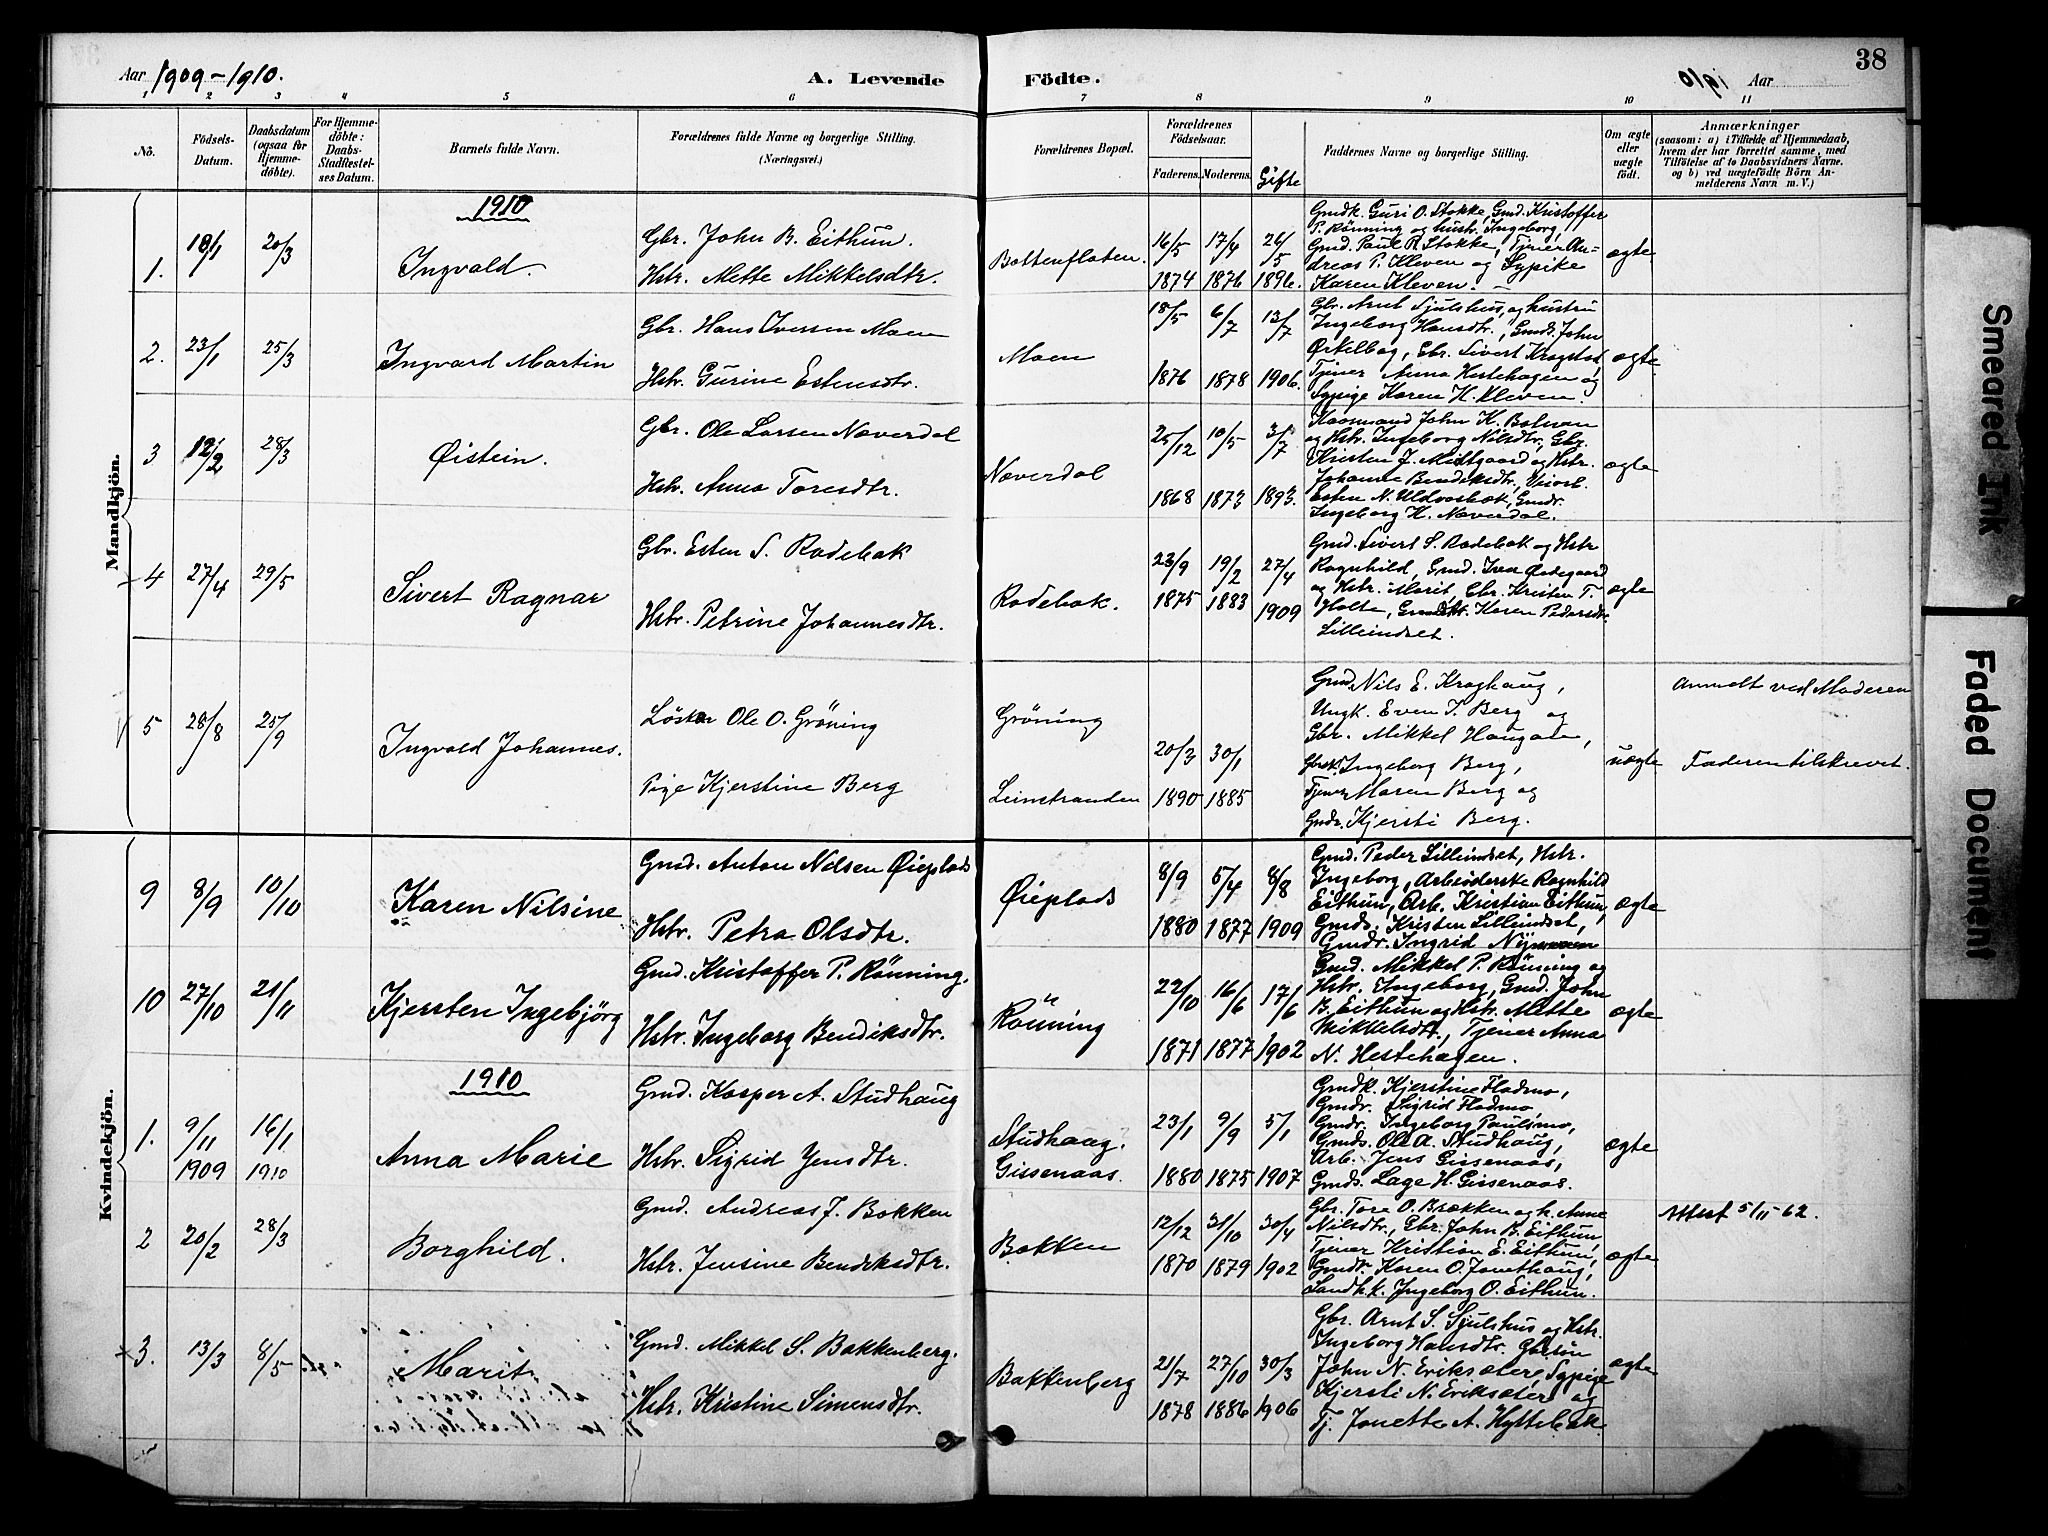 38
Aar 1909-1910.
A. Levende Födte.
1910 Aar
1 2 3 4 5 6 7 8 9 10 11
No.
Födsels-Datum.
Daabsdatum (ogsaa for Hjemmedöbte).
For Hjemmedöbte: Daabs-Stadfestelses Datum.
Barnets fulde Navn.
Forældrenes fulde Navne og borgerlige Stilling.
(Næringsvei.)
Forældrenes Bopæl.
Forældrenes Födselsaar.
Faderens. Moderens.
Gifte
Faddernes Navne og borgerlige Stilling.
Om ægte eller uægte født.
Anmærkninger
(saasom: a) i Tilfælde af Hjemmedaab, hvem der har forrettet samme, med Tilföielse af to Daabsvidners Navne. og b) ved uægtefödte Börn Anmelderens Navn m. V.)
Mandkjön.
1910
1. 18/1 20/3 Ingvald.
Gbr. John B. Eithun.
Hstr. Mette Mikkelsdtr.
Bottenflaten.
16/5 1874 17/4 1876 26/5 1896.
Gmdk. Guri O. Stokke, Gmd. Kristoffer
P. Rönning og hustr. Ingeborg,
Gmd. Paul R. Stokke, Tjener An-
dreas P. Kleven og Sypike
Karen Kleven.
ægte
2. 23/1 25/3 Ingvard Martin
Gbr. Hans Iversen Moen
Hstr. Gurine Estensdtr.
Moen
18/5 1876 6/7 1878 13/7 1906.
Gbr. Arnt Sjulshus, og hustru
Ingeborg Hansdtr., Gmds. John
Ørkelbog, Gbr. Sivert Kragstad,
Tjener Anna Hestehagen og
Sypige Karen H. Kleven.
ægte
3 12/2 28/3 Øistein.
Gbr. Ole Larsen Næverdal
Hstr. Anna Toresdtr.
Næverdal
25/12 1868 10/5 1873 3/7 1893.
John K.
og Hstr. Ingeborg Nilsdtr, Gbr.
Kristen J. Midtgaard og Hstr.
Johanne Bendiksdtr,
Esten N. Gmdr.
Ingeborg H. Næverdal.
ægte
4 27/4 29/5 Sivert Ragnar
Gbr. Esten S. Rodebak
Hstr. Petrine Johannesdtr.
Rodebak.
23/9 1875 19/2 1883 27/4 1909
Gmd. Sivert S. Rodebak og Hstr
Ragnhild, Gmd. Iver Østegaard
og Hstr. Marit, Gbr. Kristen T.
Holte, Karen Pedersdtr.
Lilleindset.
ægte
5 28/8 25/9 Ingvald Johannes.
Ole O. Gröning
Pige Kjerstine Berg
Gröning
Leinstranden
20/3 1890 30/1 1885
Gmd. Nils E. Kroghaug,
Ungk. Even I. Berg og
Gbr. Mikkel Haugan,
Ingeborg Berg,
Tjener Maren Berg og
Gmdr. Kjersti Berg.
uægte
Anmeldt ved Moderen
Faderen tilskrevet.
Kvindekjön.
9 8/9 10/10 Karen Nilsine
Gmd. Anton Nilsen Øieplads
Hstr. Petra Olsdtr.
Øieplads
8/9 1880 5/4 1877 8/8 1909
Gmd. Peder Lilleindset, Hstr.
Ingeborg, Arbeiderske Ragnhild
Eithun, Arb. Kristian Eithun,
Gmds. Kristen Lilleindset,
Gmdr. Ingrid Nymoen
ægte
10 27/10 21/11 Kjersten Ingebjörg
Gmd. Kristoffer P. Rönning.
Hstr. Ingeborg Bendiksdtr.
Rönning
22/10 1871 16/6 1877 17/6 1902
Gmd. Mikkel P. Rönning og
Hstr. Ingeborg, Gmd. John
B. Eithun og Hstr. Mette
Mikkelsdtr, Tjener Anna
N. Hestehagen.
ægte
1910
1. 9/11 1909 16/1 1910 Anna Marie
Gmd. Kasper A. Studhaug
Hstr. Sigrid Jensdtr.
Studhaug. Gissenaas.
23/1 1880 9/9 1875 5/1 1907
Gmdk. Kjerstine Fladmo,
Gmdr. Sigrid Fladmo,
Gmdr. Ingeborg Paulsmo,
Gmds. Ole A. Studhaug,
Arb. Jens Gissenaas,
Gmds. Lage H. Gissenaas.
ægte
2 20/2 28/3 Borghild.
Gmd. Andreas J. Bakken
Hstr. Jensine Bendiksdtr.
Bakken
12/12 1870 31/10 1879 30/4 1902
Gbr. Tore O. Brækken og h. Anne
Nilsdtr, Gbr. John B. Eithun,
Tjener Kristian E. Eithun,
Gmdtr. Karen O. Jonethaug,
Landh.k. Ingeborg O. Eithun.
ægte
Attest 5/11-62.
3. 13/3 8/5 Marit
Gmd. Mikkel S. Bakkenberg.
Hstr. Kristine Simensdtr.
Bakkenberg
21/7 1878 27/10 1886 30/3 1906
Gbr. Arnt S. Sjulshus og Hstr.
Ingeborg Hansdtr. Gbrsön
John N. Eriksætere, Sypige
Kjersti N. Eriksætere og
Tj. Jonette A. Hyttebak.
ægte
Smeared Ink
Faded Document